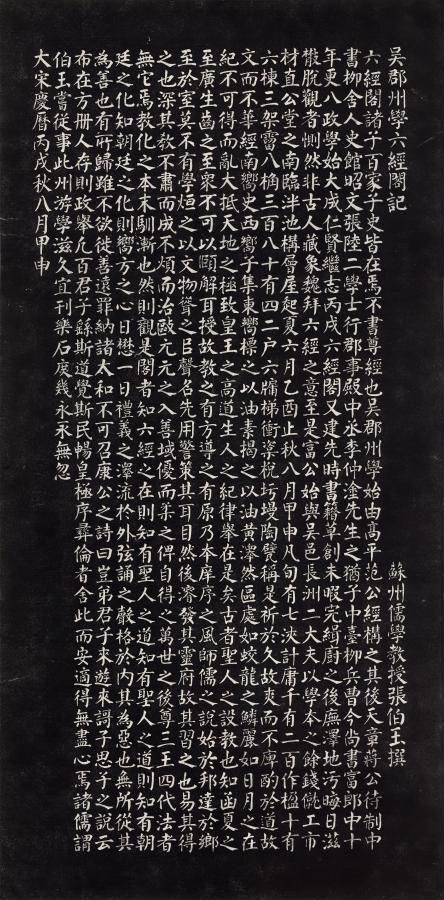 吳郡州學六經閣記
蘇州儒學教授張伯玉撰
六經閣諸子百家子史皆在焉不書尊經也吳郡州學始由高平范公經構之其後天章蔣公待制中
書柳舍人史館昭文張陸二學士行郡事殿中丞李仲塗先生之猶子中臺柳兵曹今尚書富郎中十
年更八政學始大成仁賢繼志丙戌六經閣又建先時書籍草創未暇完緝廚之後廡澤地汚晦日滋
散脫觀者惻然非古人藏象魏拜六經之意至是富公始與吳邑長洲二大夫以學本之餘錢僦工市
材直公堂之南臨泮池構層屋起夏六月乙酉止秋八月甲申凡旬有七浹計庸千有二百作楹十有
六棟三架霤八桷三百八十有四二户六牖梯衝粢棁圬墁陶甓稱是祈於久故爽而不庳酌於道故
文而不華經南嚮史西嚮子集東嚮標之以油素揭之以油黃澤然區處如蛟龍之鱗麗如日月之在
紀不可得而亂大抵天地之極致皇王之高道生人之紀律舉在是矣古者聖人之設教也知函夏之
至廣生齒之至衆不可以頤解耳授故教之有方導之有原乃本庠序之風師儒之說始於邦達於鄉
至於室莫不有學烜之以文物聳之以聲名先用警策其耳目然後溶發其靈府故其習之也易其得
之也深其教不肅而成不煩而治敺元元之入善域優而柔之俾自得之萬世之後尊三王四代法者
無它焉教化之本末馴漸也然則觀是閣者知六經之在則知有聖人之道知有聖人之道則知有朝
廷之化知朝廷之化則嚮方之心日懋一日禮義之澤流於外弦誦之聲格於內其為惡也無所從其
為善也有所歸雖不欲徙善遠罪納諸大和不可召康公之詩曰豈弟君子來游來謌子思子之說云
布在方册人存則政舉凡百君子繇斯道覺斯民暢皇極序彝倫者舍此而安適得無盡心焉諸儒謂
伯玉嘗從事此州游學滋久宜刊樂石庶幾永永無忽
大宋慶曆丙戌秋八月甲申